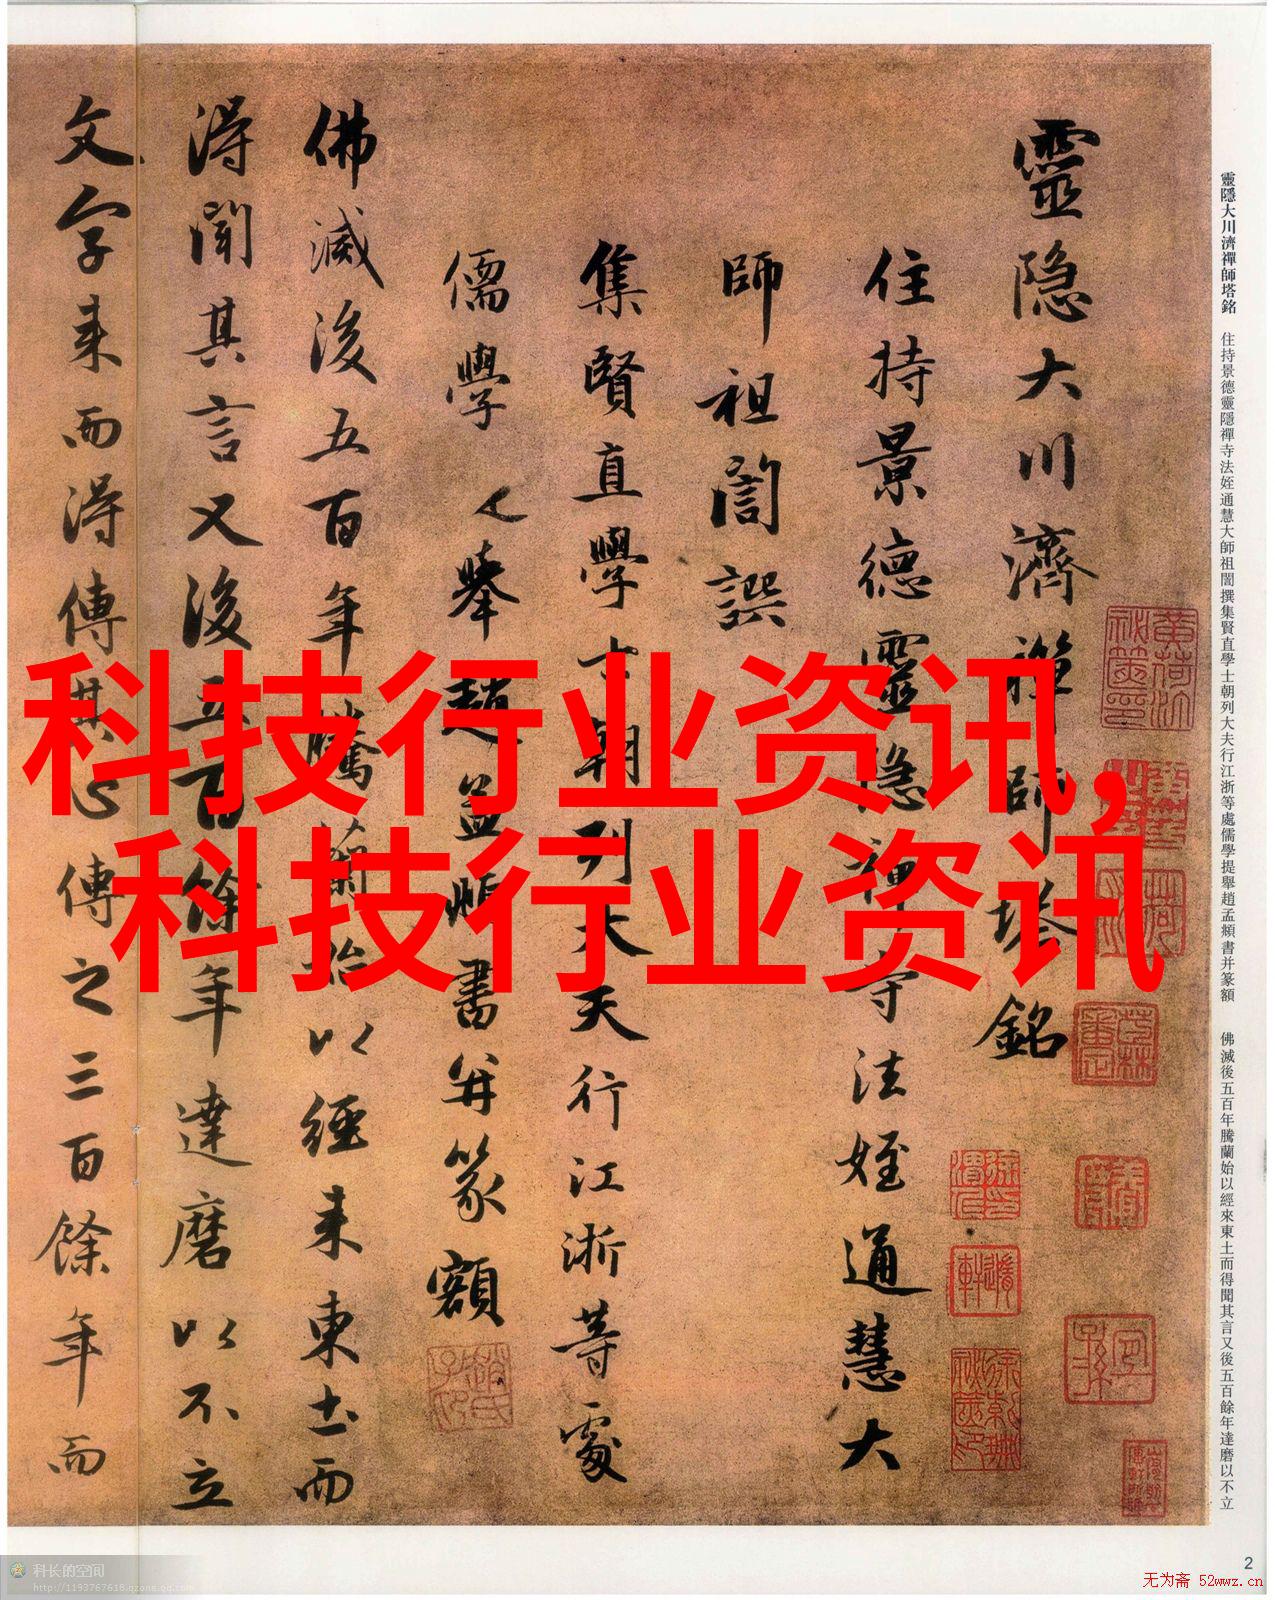 靈隱大川濟禪師塔銘
住持景德靈隱禪寺法姪通慧大
師祖誾譔
集賢直學士朝列大夫行江浙等處
儒學提舉趙孟頫書并篆額
佛滅後五百年騰蘭始以經来東土而
得聞其言又後五百餘年達磨以不立
文字来而得傳其心傳之三百餘年而
科技行业资讯,
科技行业资讯
靈隱大川濟禪師塔銘 住持景德靈隱禪寺法姪通慧大師祖誾撰集賢直學士朝列大夫行江浙等處儒學提舉趙孟頫書并篆額 佛滅後五百年騰蘭始以經來東土而得聞其言又後五百餘年達磨以不立
2
科长的空间
http://1193767618.qzone.qq.com
无为斋 52wwz.cn